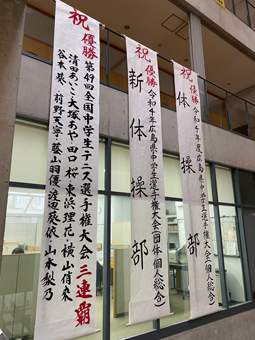 祝
優勝 第49回全国中学生テニス選手権大会 三連覇
清田あいこ・大塚あや・田口 桜・東浜理花・横山侑来
谷本 葵・前野天寧・藤山羽優・渡辺葵依・山本梨乃
祝
優勝 令和4年広島県中学生選手権大会(団体・個人総合)
新体操部
祝
優勝 令和4年度広島県中学生大会(個人総合)
体操部